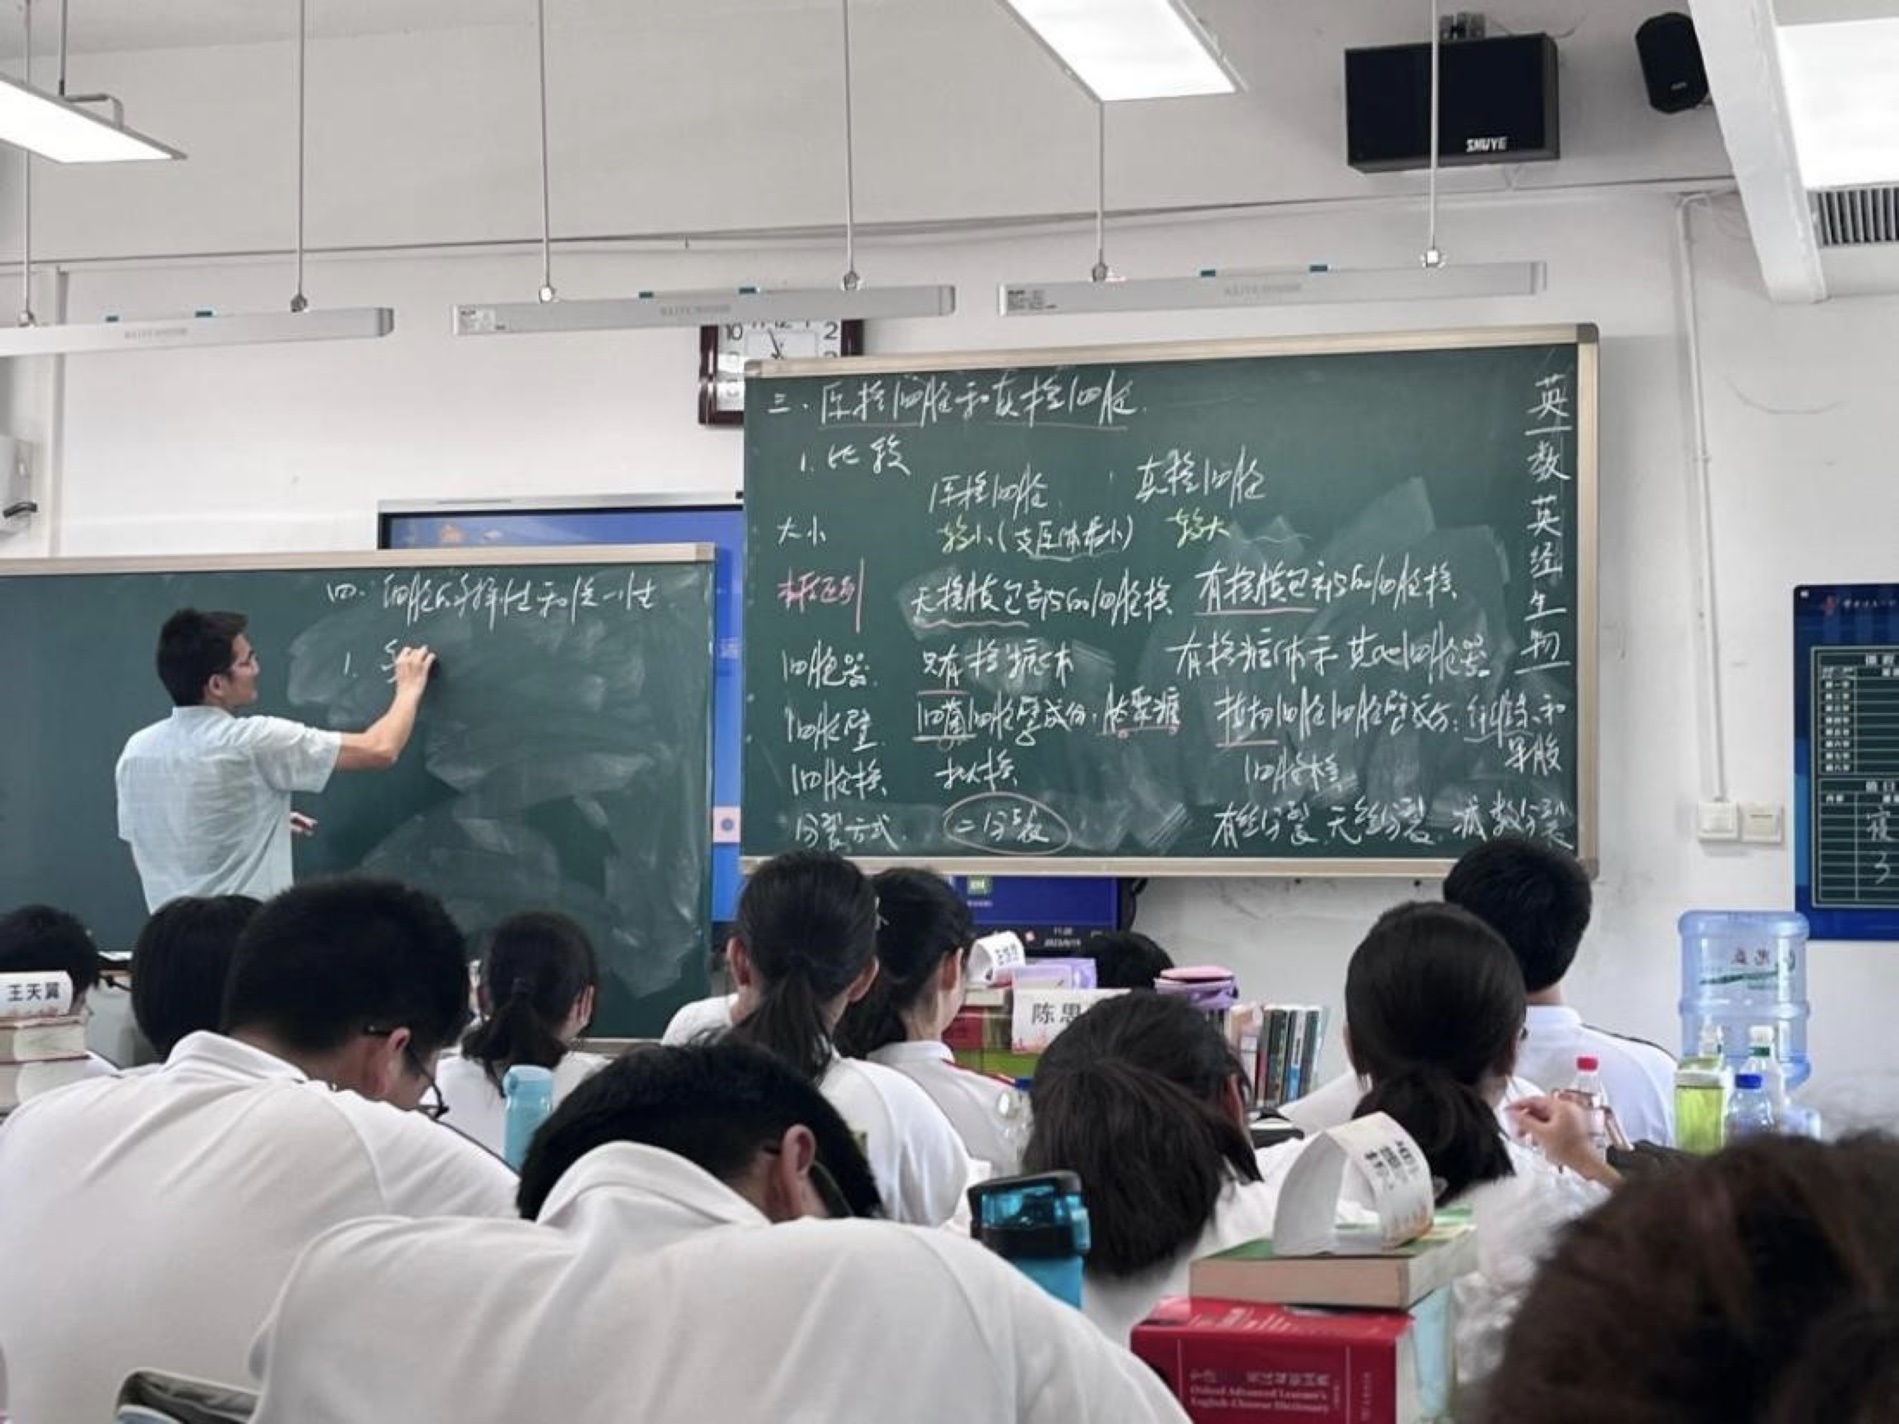 SHUYE
10
2
三、原核细胞和真核细胞
1. 比较
原核细胞 真核细胞
大小 较小(支原体最小) 较大
本质区别 无核膜包被的细胞核 有核膜包被的细胞核
细胞器 只有核糖体 有核糖体和其他细胞器
细胞壁 细菌细胞壁成分:肽聚糖 植物细胞细胞壁成分:纤维素和
果胶
细胞核 拟核 细胞核
分裂方式 二分裂 有丝分裂 无丝分裂 减数分裂
英
数
英
经
生
物
四、细胞的多样性和统一性
1.
王天翼
陈思
Oxford Advanced Learner's
English-Chinese Dictionary